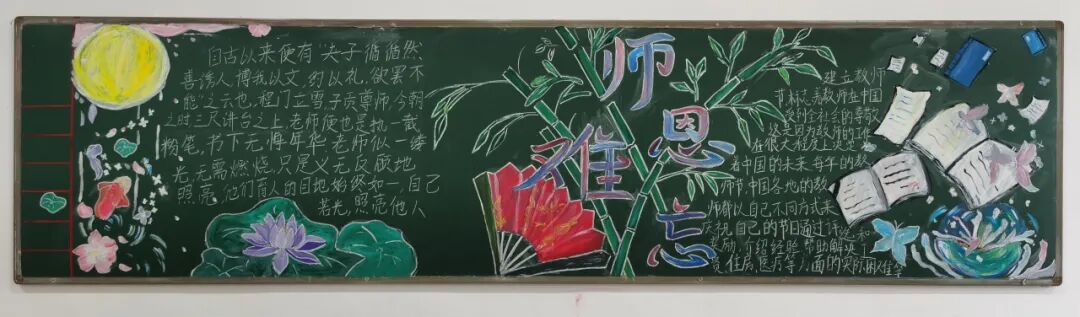 自古以来便有“夫子循循然
善诱人，博我以文，约以礼，欲罢不
能”之云也，程门立雪，子贡尊师，今朝
之时三尺讲台之上老师便也是执一截
粉笔，书下无悔年华老师似一缕
光，无需燃烧，只是义无反顾地
照亮，他们育人的目地始终如一，自己
若光，照亮他人
师
恩
难
忘
建立教师
节，标志着教师在中国
受到全社会的尊敬
这是因为教师的工作
在很大程度上决定
着中国的未来每年的教
师节，中国各地的教
师都以自己不同方式来
庆祝自己的节日通过评选和
奖励，介绍经验，帮助解决工
资，住房，医疗等方面的实际困难等